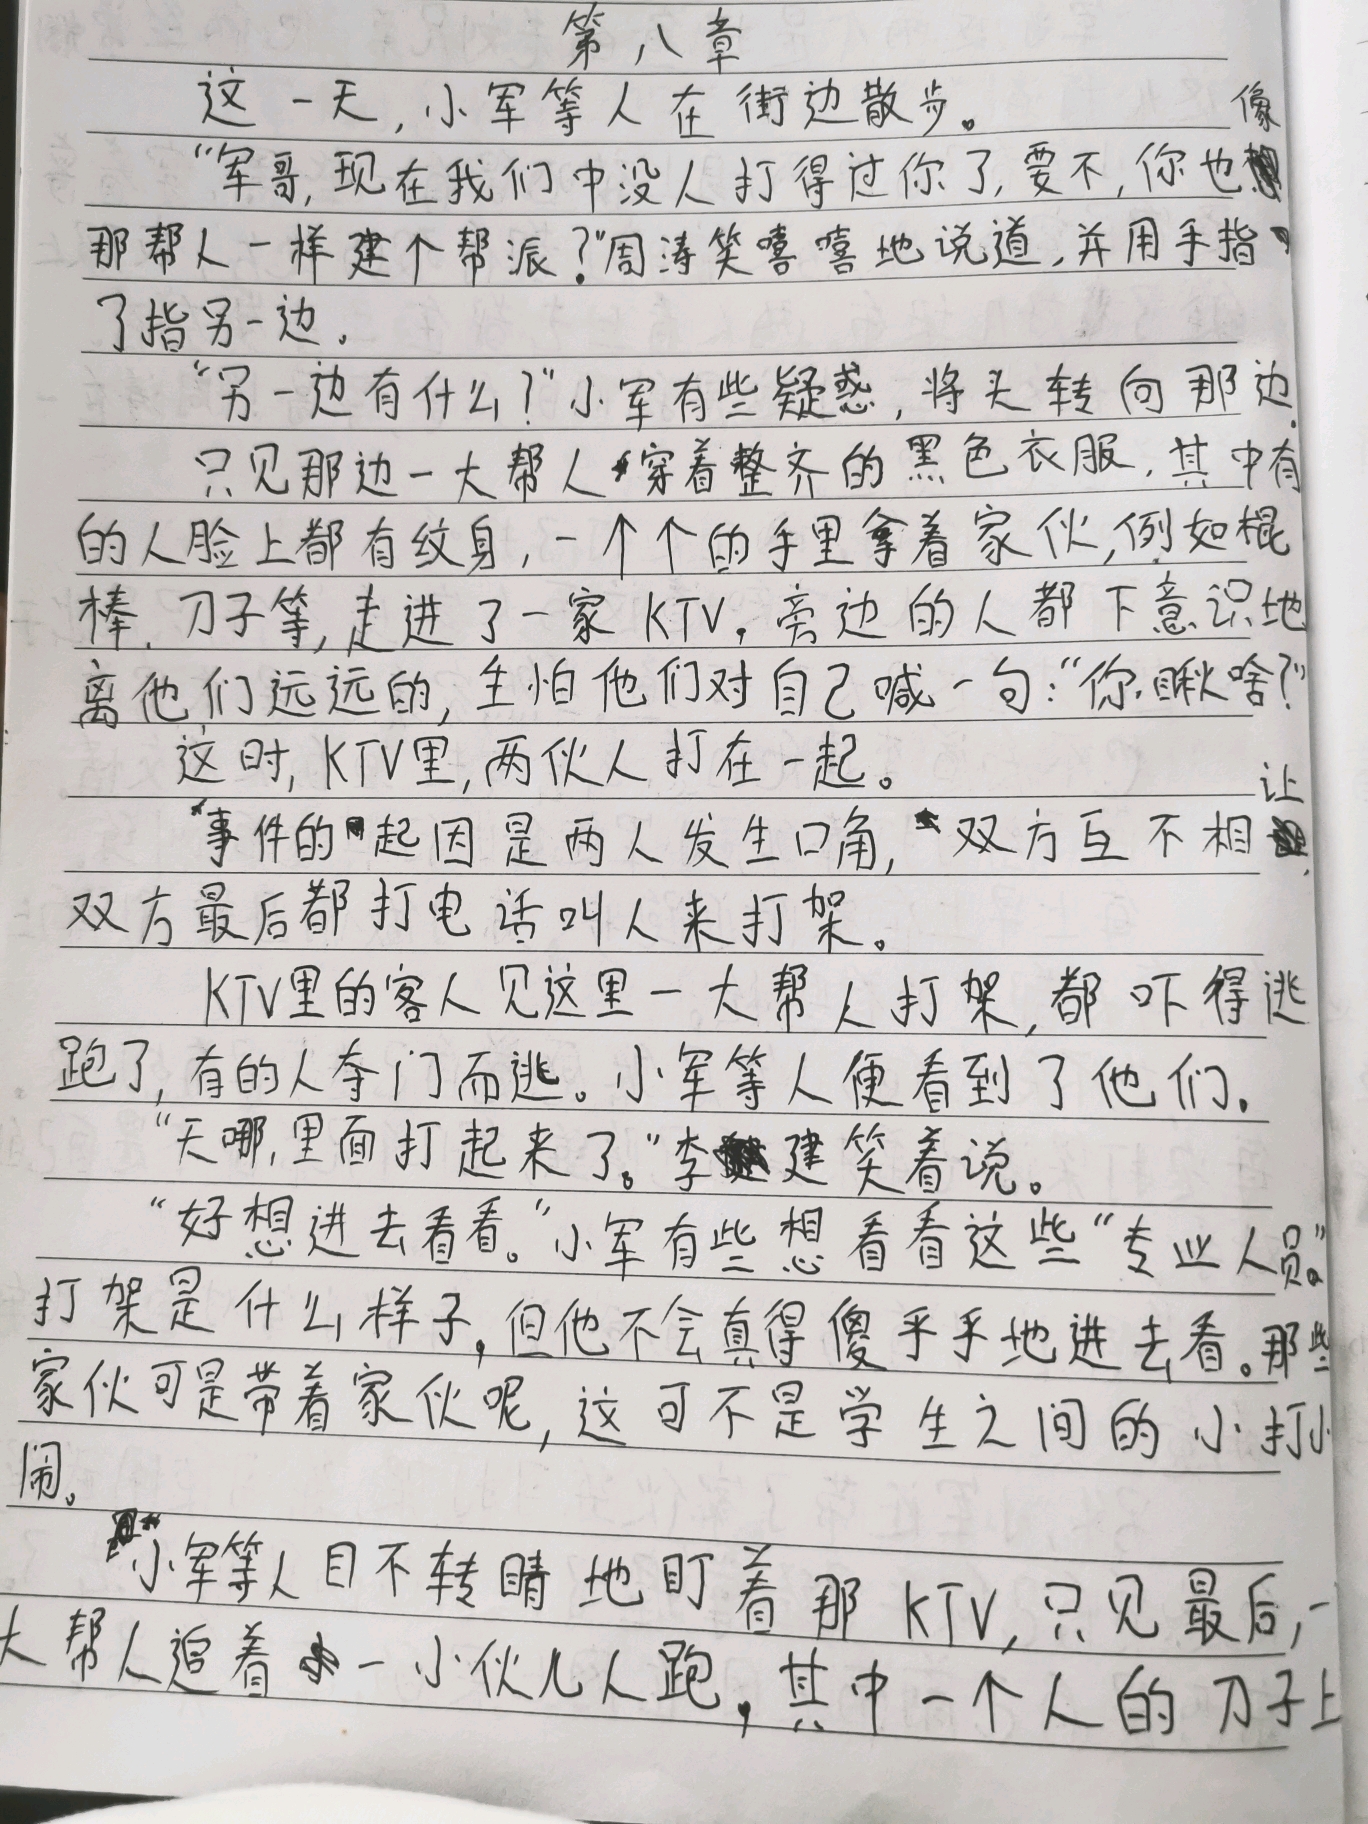 第八章
这一天,小军等人在街边散步。
“军哥,现在我们中没人打得过你了,要不,你也像
那帮人一样建个帮派?”周涛笑嘻嘻地说道,并用手指
了指另一边。
“另一边有什么?”小军有些疑惑,将头转向那边.
只见那边一大帮人穿着整齐的黑色衣服,其中有
的人脸上都有纹身,一个个的手里拿着家伙,例如棍
棒、刀子等,走进了一家KTV。旁边的人都下意识地
离他们远远的,生怕他们对自己喊一句:“你瞅啥?”
这时,KTV里,两伙人打在一起。
事件的起因是两人发生口角,双方互不相让,
双方最后都打电话叫人来打架。
KTV里的客人见这里一大帮人打架,都吓得逃
跑了,有的人夺门而逃。小军等人便看到了他们.
“天哪,里面打起来了。”李建笑着说。
“好想进去看看。”小军有些想看看这些“专业人员”
打架是什么样子,但他不会真得傻乎乎地进去看。那些
家伙可是带着家伙呢,这可不是学生之间的小打小
闹。
小军等人目不转睛地盯着那KTV,只见最后,一
大帮人追着一小伙儿人跑,其中一个人的刀子上